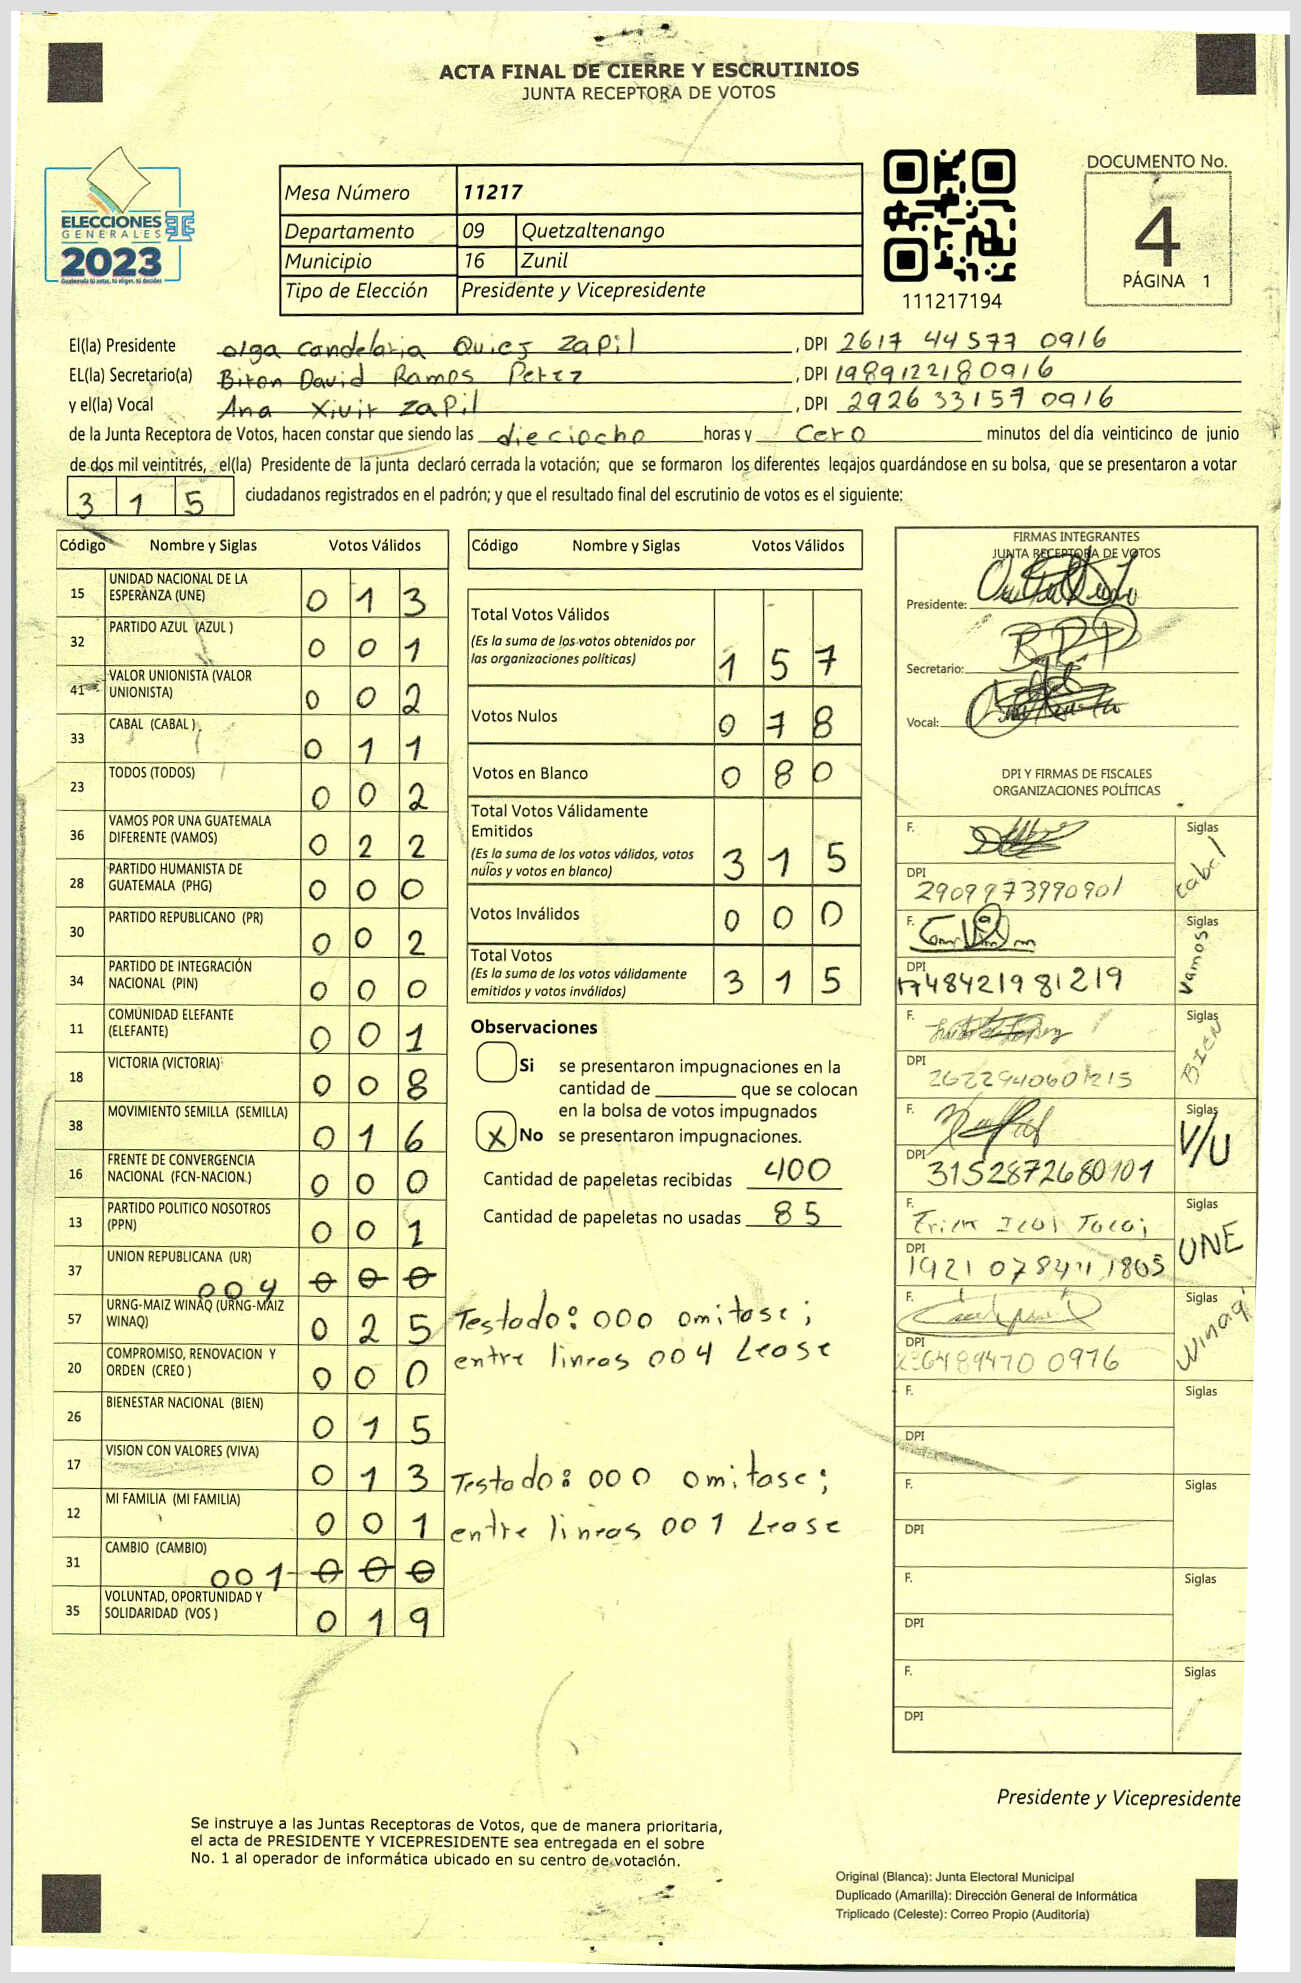 ACTA FINAL DE CIERRE Y ESCRUTINIOS
JUNTA RECEPTORA DE VOTOS
ELECCIONES
GENERALES
2023
Guatemala tú votas, tú eliges, tú decides
Mesa Número 11217
Departamento 09 Quetzaltenango
Municipio 16 Zunil
Tipo de Elección Presidente y Vicepresidente
111217194
DOCUMENTO No.
4
PÁGINA 1
El(la) Presidente olga Candelaria Quiej Zapil , DPI 2617 44577 0916
EL(la) Secretario(a) Biron David Ramos Perez , DPI 1989122180916
y el(la) Vocal Ana Xivir Zapil , DPI 2926 33157 0916
de la Junta Receptora de Votos, hacen constar que siendo las dieciocho horas y Cero minutos del día veinticinco de junio
de dos mil veintitrés, el(la) Presidente de la junta declaró cerrada la votación; que se formaron los diferentes legajos guardándose en su bolsa, que se presentaron a votar
3 1 5 ciudadanos registrados en el padrón; y que el resultado final del escrutinio de votos es el siguiente:
Código Nombre y Siglas Votos Válidos
15 UNIDAD NACIONAL DE LA ESPERANZA (UNE) 0 1 3
32 PARTIDO AZUL (AZUL ) 0 0 1
41 VALOR UNIONISTA (VALOR UNIONISTA) 0 0 2
33 CABAL (CABAL ) 0 1 1
23 TODOS (TODOS) 0 0 2
36 VAMOS POR UNA GUATEMALA DIFERENTE (VAMOS) 0 2 2
28 PARTIDO HUMANISTA DE GUATEMALA (PHG) 0 0 0
30 PARTIDO REPUBLICANO (PR) 0 0 2
34 PARTIDO DE INTEGRACIÓN NACIONAL (PIN) 0 0 0
11 COMUNIDAD ELEFANTE (ELEFANTE) 0 0 1
18 VICTORIA (VICTORIA) 0 0 8
38 MOVIMIENTO SEMILLA (SEMILLA) 0 1 6
16 FRENTE DE CONVERGENCIA NACIONAL (FCN-NACION.) 0 0 0
13 PARTIDO POLITICO NOSOTROS (PPN) 0 0 1
37 UNION REPUBLICANA (UR) 004 0 0 0
57 URNG-MAIZ WINAQ (URNG-MAIZ WINAQ) 0 2 5
20 COMPROMISO, RENOVACION Y ORDEN (CREO ) 0 0 0
26 BIENESTAR NACIONAL (BIEN) 0 1 5
17 VISION CON VALORES (VIVA) 0 1 3
12 MI FAMILIA (MI FAMILIA) 0 0 1
31 CAMBIO (CAMBIO) 001 0 0 0
35 VOLUNTAD, OPORTUNIDAD Y SOLIDARIDAD (VOS ) 0 1 9
Código Nombre y Siglas Votos Válidos
Total Votos Válidos
(Es la suma de los votos obtenidos por
las organizaciones políticas) 1 5 7
Votos Nulos 0 7 8
Votos en Blanco 0 8 0
Total Votos Válidamente
Emitidos
(Es la suma de los votos válidos, votos
nulos y votos en blanco) 3 1 5
Votos Inválidos 0 0 0
Total Votos
(Es la suma de los votos válidamente
emitidos y votos inválidos) 3 1 5
Observaciones
Si se presentaron impugnaciones en la
cantidad de ________ que se colocan
en la bolsa de votos impugnados
X No se presentaron impugnaciones.
Cantidad de papeletas recibidas 400
Cantidad de papeletas no usadas 85
Testado: 000 omitase;
entre lineas 004 Lease
Testado: 000 omitase;
entre lineas 001 Lease
FIRMAS INTEGRANTES
JUNTA RECEPTORA DE VOTOS
Presidente:
Secretario:
Vocal:
DPI Y FIRMAS DE FISCALES
ORGANIZACIONES POLÍTICAS
F. Siglas cabal
DPI 2909973990901
F. Siglas Vamos
DPI
F. Siglas BIEN
DPI
F. Siglas V/U
DPI 3152872680901
F. Siglas UNE
DPI
F. Siglas Winaq
DPI
F. Siglas
DPI
F. Siglas
DPI
F. Siglas
DPI
F. Siglas
DPI
Presidente y Vicepresidente
Se instruye a las Juntas Receptoras de Votos, que de manera prioritaria,
el acta de PRESIDENTE Y VICEPRESIDENTE sea entregada en el sobre
No. 1 al operador de informática ubicado en su centro de votación.
Original (Blanca): Junta Electoral Municipal
Duplicado (Amarilla): Dirección General de Informática
Triplicado (Celeste): Correo Propio (Auditoría)